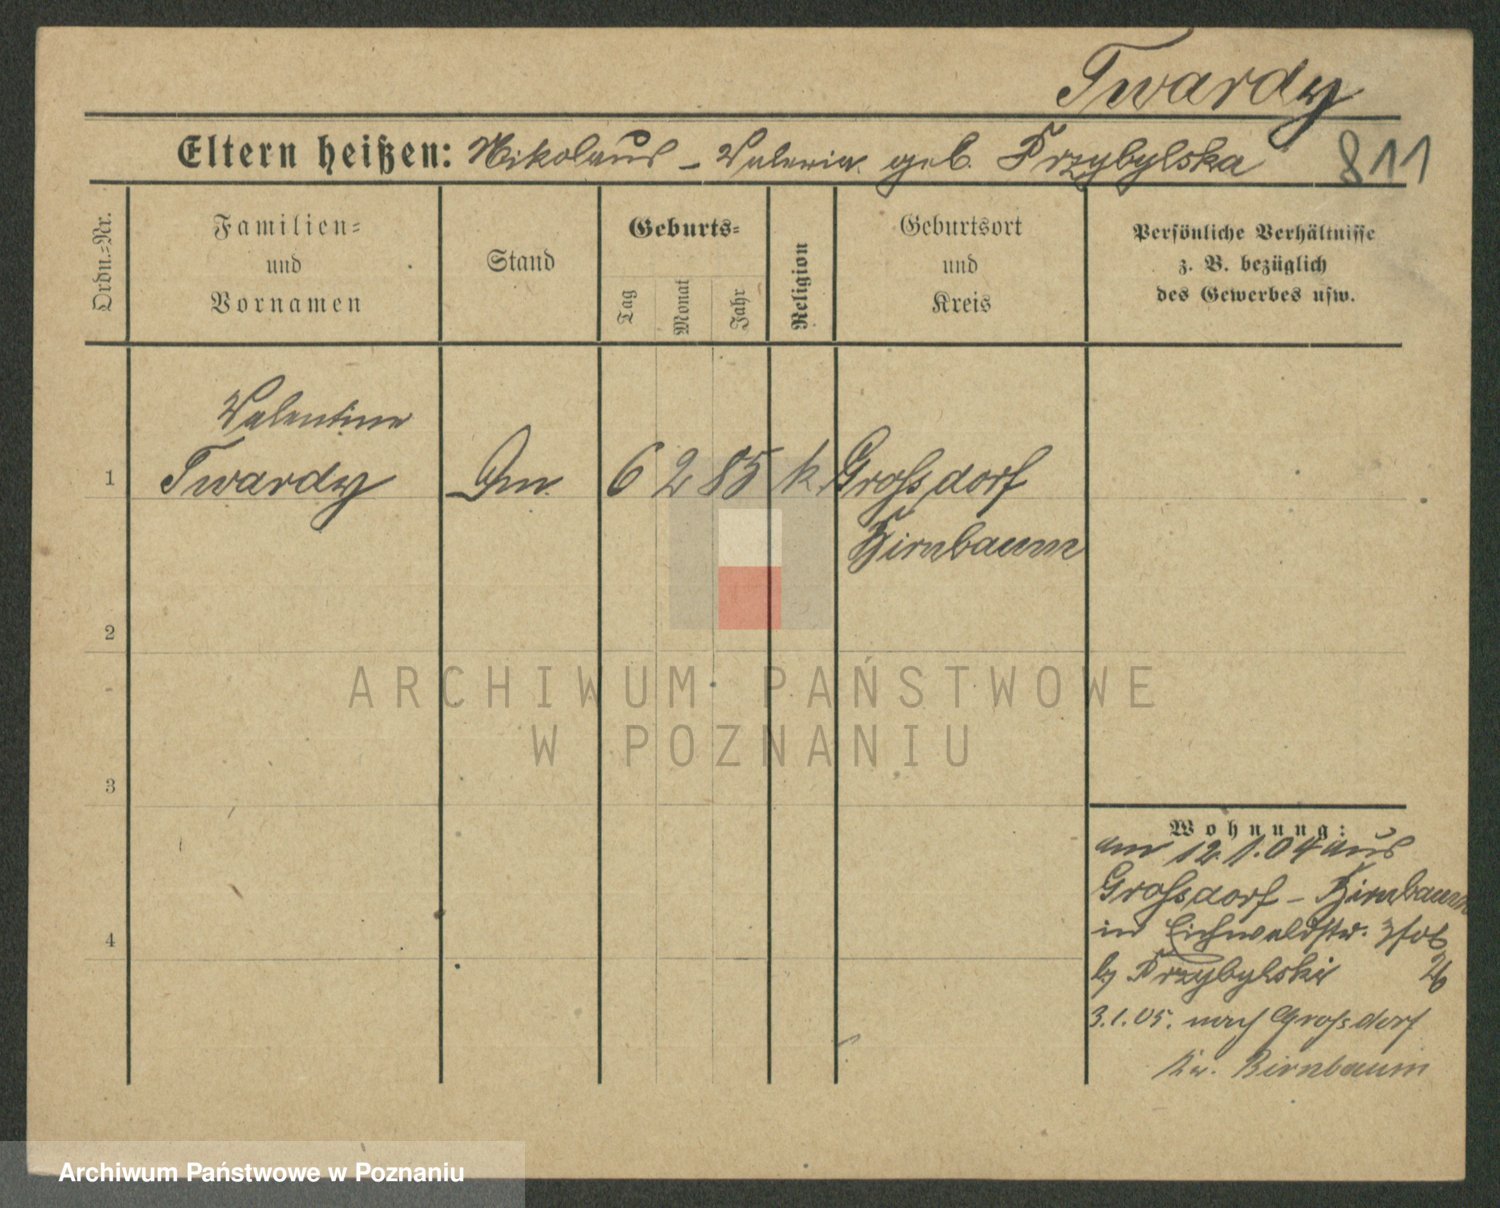 Twardy
Eltern heißen: Nikolaus - Valeria geb. Przybylska 811
Ordn.=Nr.
Familien=
und
Vornamen
Stand
Geburts=
Tag
Monat
Jahr
Religion
Geburtsort
und
Kreis
Persönliche Verhältnisse
z. B. bezüglich
des Gewerbes usw.
Valentine
1 Twardy 6 2 85 k. Grossdorf
Birnbaum
2
3
4
Wohnung:
am 12.1.04 aus
Grossdorf - Birnbaum
in Eichwaldstr.
b/ Przybylski 26
3.1.05. nach Grossdorf
Kr. Birnbaum
ARCHIWUM PAŃSTWOWE
W POZNANIU
Archiwum Państwowe w Poznaniu